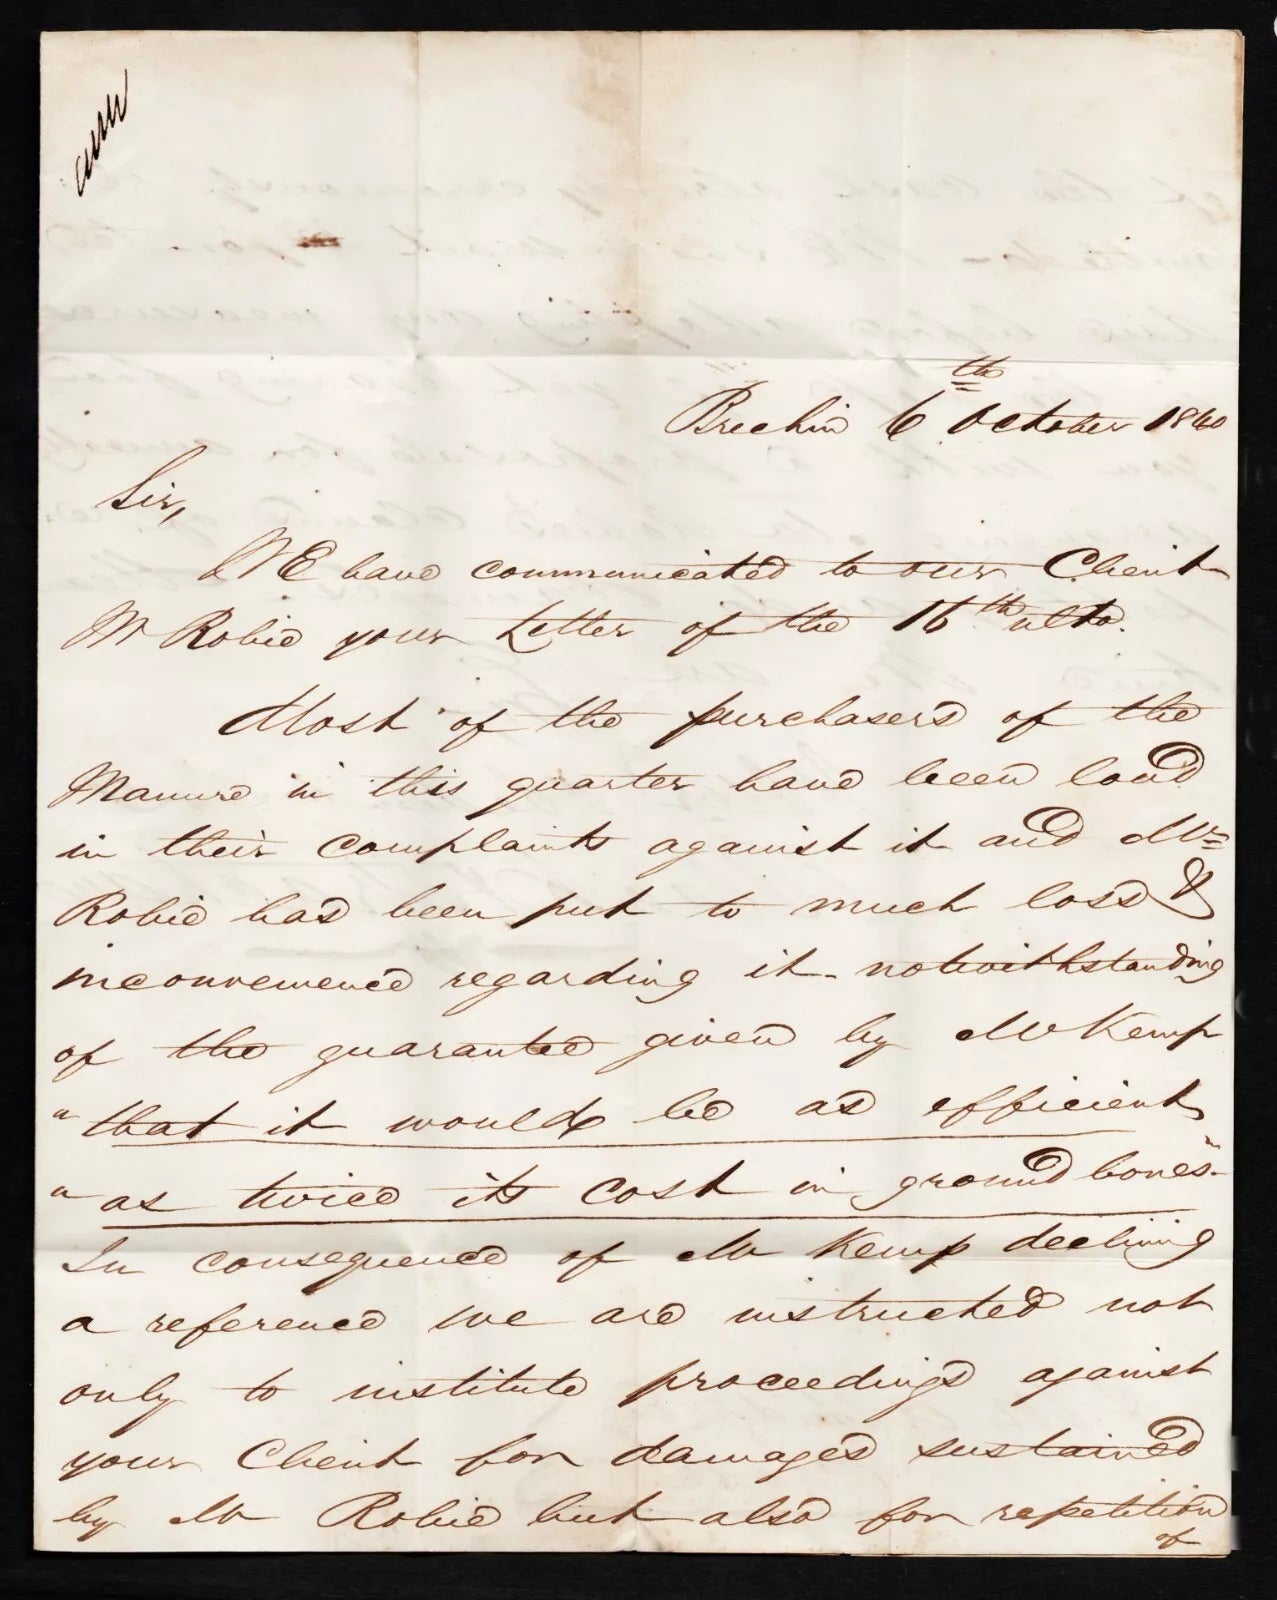 Brechin 6th October 1840
Sir,
WE have communicated to our Client
Mr Robie your Letter of the 16th ulto.
Most of the purchasers of the
Manure in this quarter have been loud
in their complaints against it and Mr
Robie has been put to much loss &
inconvenience regarding it - notwithstanding
of the guarantee given by Mr Kemp
"that it would be as efficient
"as twice its cost in ground bones"-
In consequence of Mr Kemp declining
a reference we are instructed not
only to institute proceedings against
your Client for damages sustained
by Mr Robie but also for repetition
of